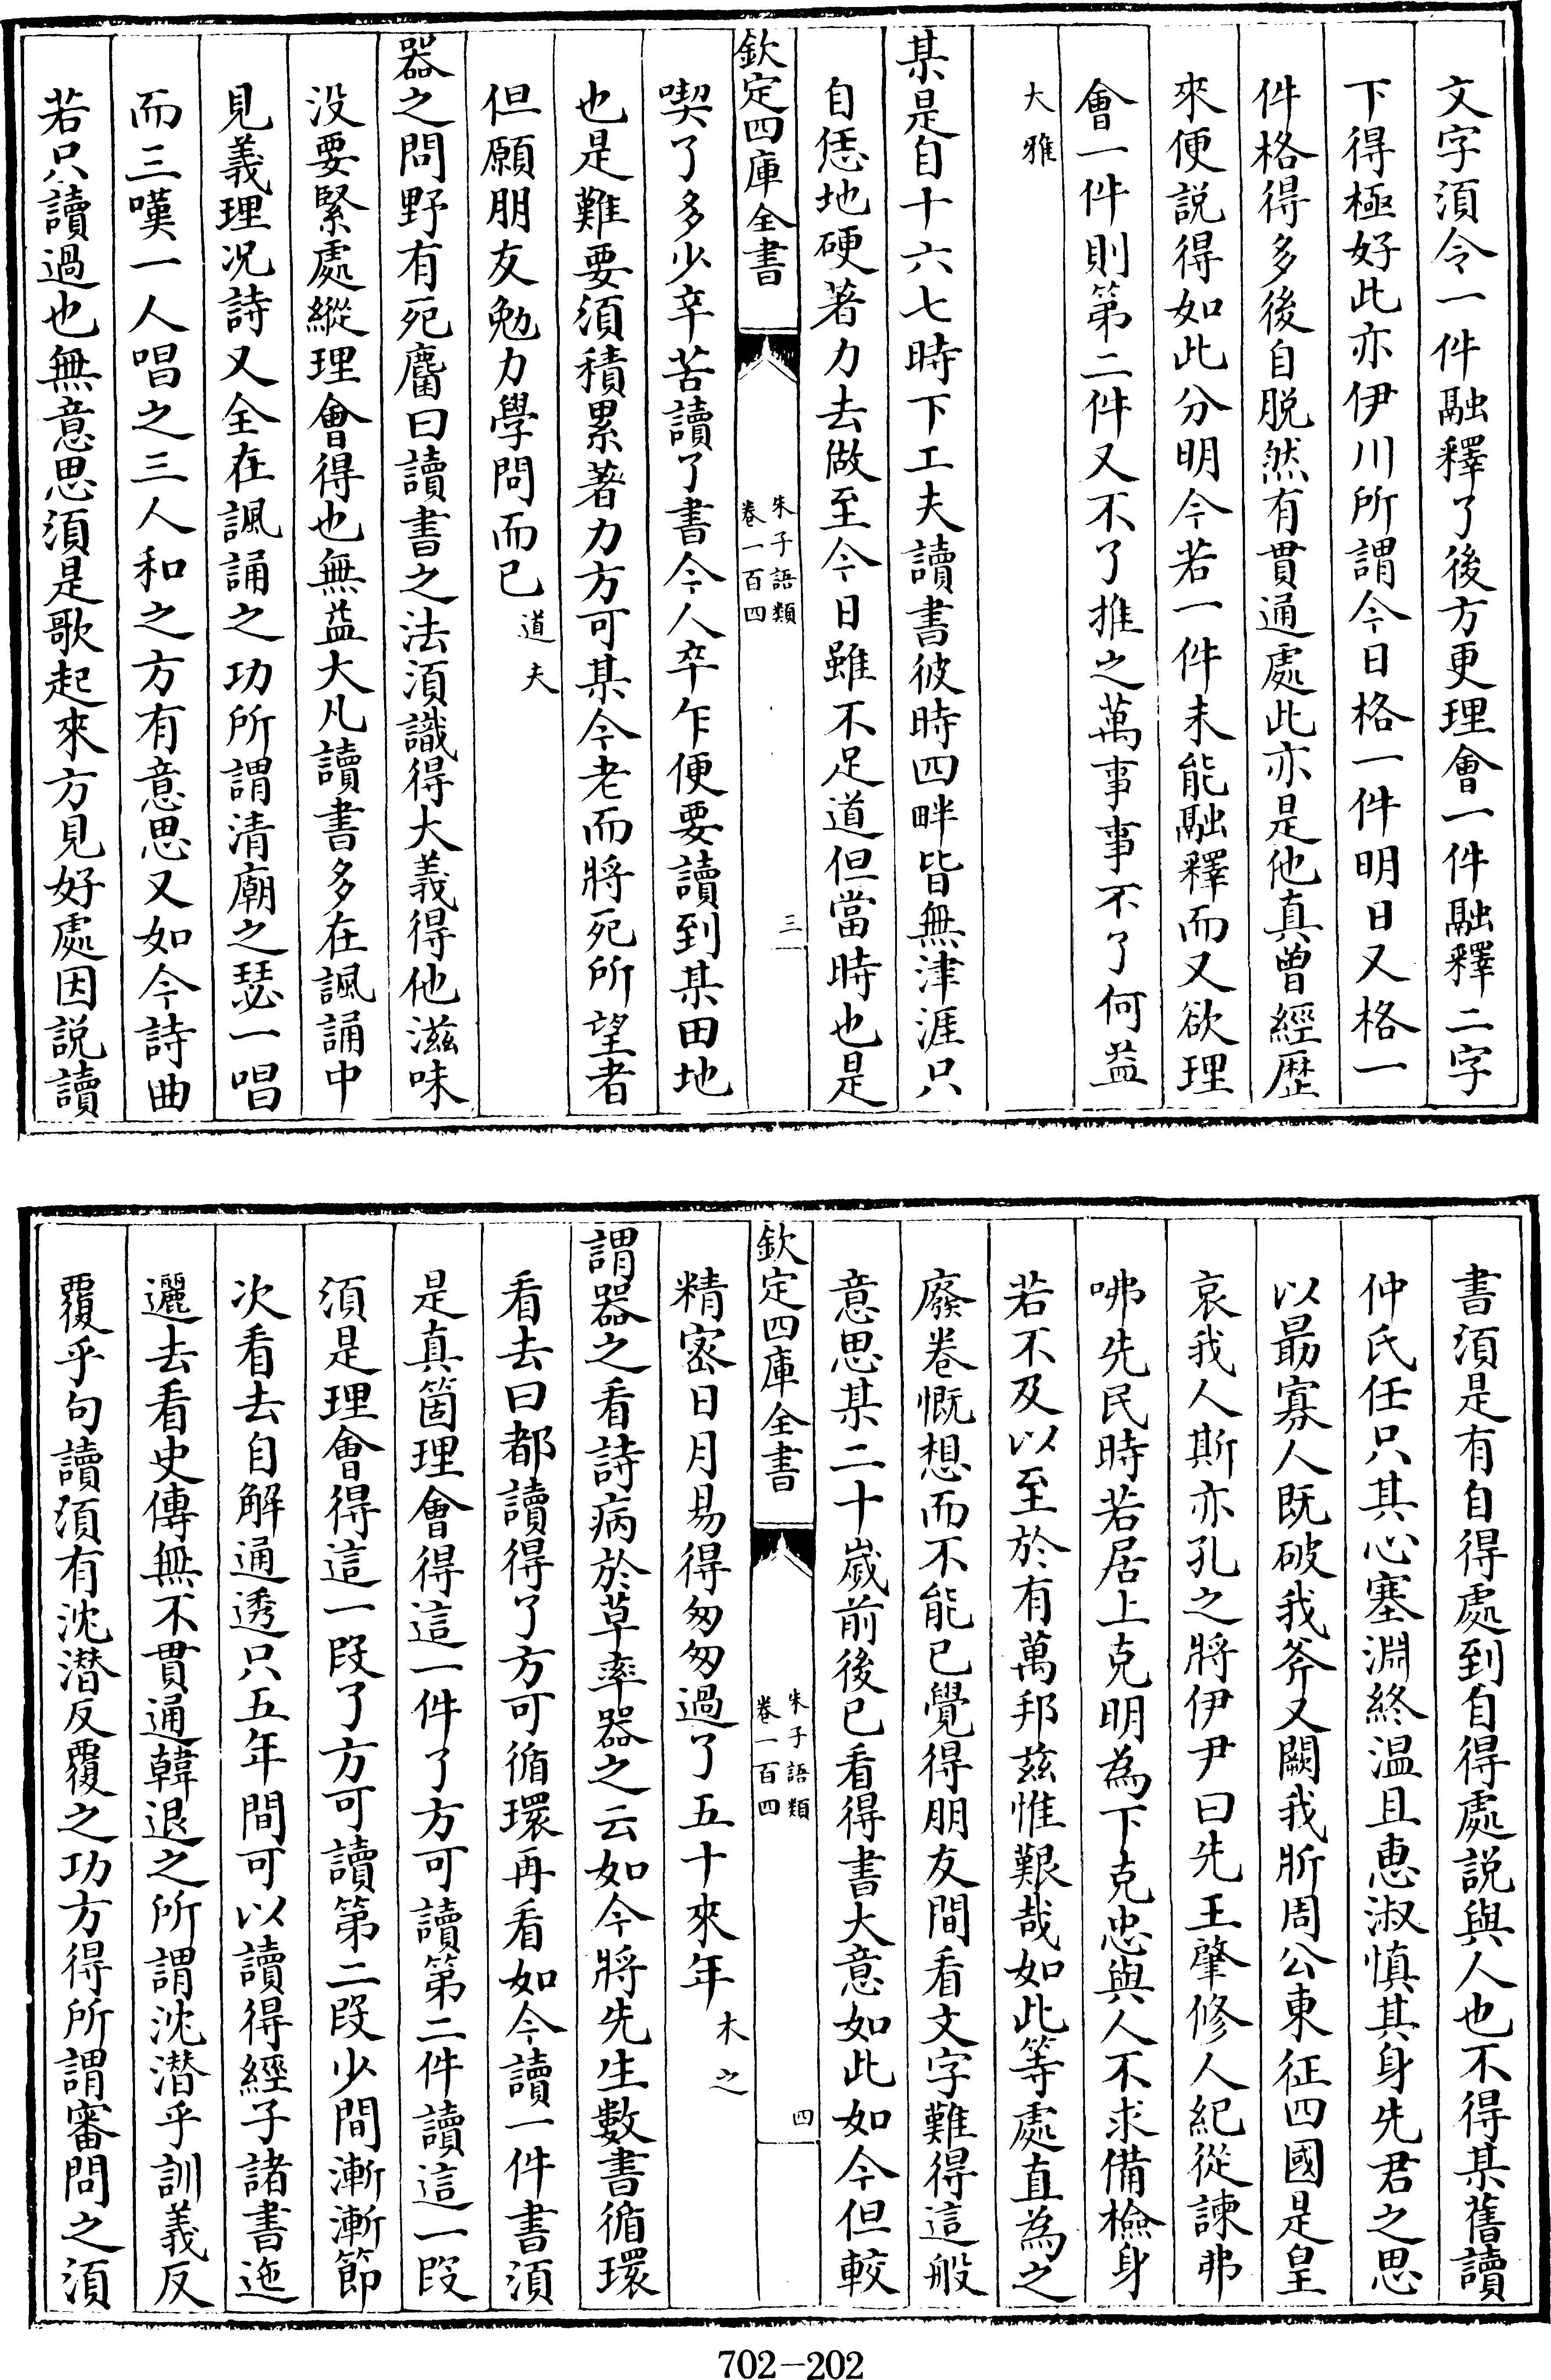 文字須令一件融釋了後方更理會一件融釋二字
下得極好此亦伊川所謂今日格一件明日又格一
件格得多後自脱然有貫通處此亦是他真曾經歴
來便説得如此分明今若一件未能融釋而又欲理
會一件則第二件又不了推之萬事事不了何益
大雅
某是自十六七時下工夫讀書彼時四畔皆無津涯只
自恁地硬著力去做至今日雖不足道但當時也是
欽定四庫全書
朱子語類
卷一百四
三
喫了多少辛苦讀了書今人卒乍便要讀到某田地
也是難要須積累著力方可某今老而將死所望者
但願朋友勉力學問而已道夫
器之問野有死麕曰讀書之法須識得大義得他滋味
没要緊處縱理會得也無益大凡讀書多在諷誦中
見義理况詩又全在諷誦之功所謂清廟之瑟一唱
而三嘆一人唱之三人和之方有意思又如今詩曲
若只讀過也無意思須是歌起來方見好處因説讀
書須是有自得處到自得處説與人也不得某舊讀
仲氏任只其心塞淵終温且惠淑慎其身先君之思
以朂寡人既破我斧又闕我斨周公東征四國是皇
哀我人斯亦孔之將伊尹曰先王肇修人紀從諫弗
咈先民時若居上克明為下克忠與人不求備檢身
若不及以至於有萬邦兹惟艱哉如此等處直為之
廢卷慨想而不能已覺得朋友間看文字難得這般
意思某二十歲前後已看得書大意如此如今但較
欽定四庫全書
朱子語類
卷一百四
四
精密日月易得匆匆過了五十來年木之
謂器之看詩病於草率器之云如今將先生數書循環
看去曰都讀得了方可循環再看如今讀一件書須
是真箇理會得這一件了方可讀第二件讀這一段
須是理會得這一段了方可讀第二段少間漸漸節
次看去自解通透只五年間可以讀得經子諸書迤
邐去看史傳無不貫通韓退之所謂沈潜乎訓義反
覆乎句讀須有沈潜反覆之功方得所謂審問之須
702-202